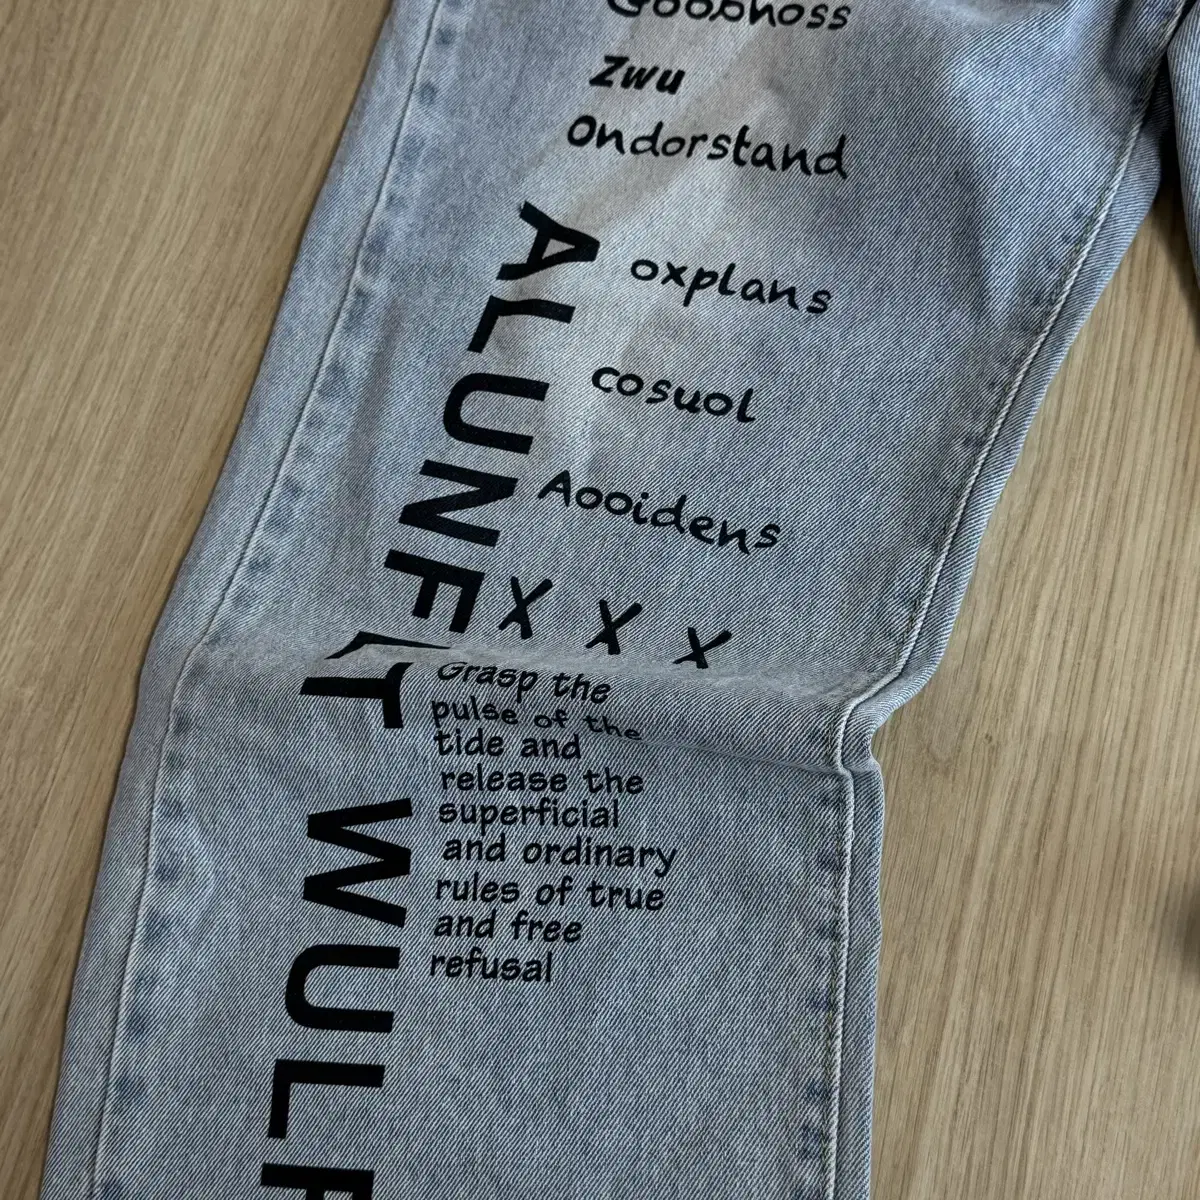 Goophoss
Zwu
Ondorstand
oxplans
cosuol
Aooidens
X X X
ALUNFIT WULF
Grasp the
pulse of the
tide and
release the
superficial
and ordinary
rules of true
and free
refusal